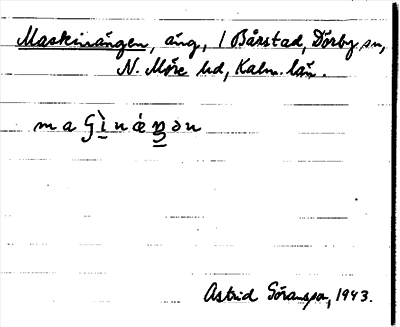 Maskinängen, äng, i Bårstad, Dörby sn,
N. Möre hd, Kalm. län.
Astrid Göransson, 1943.